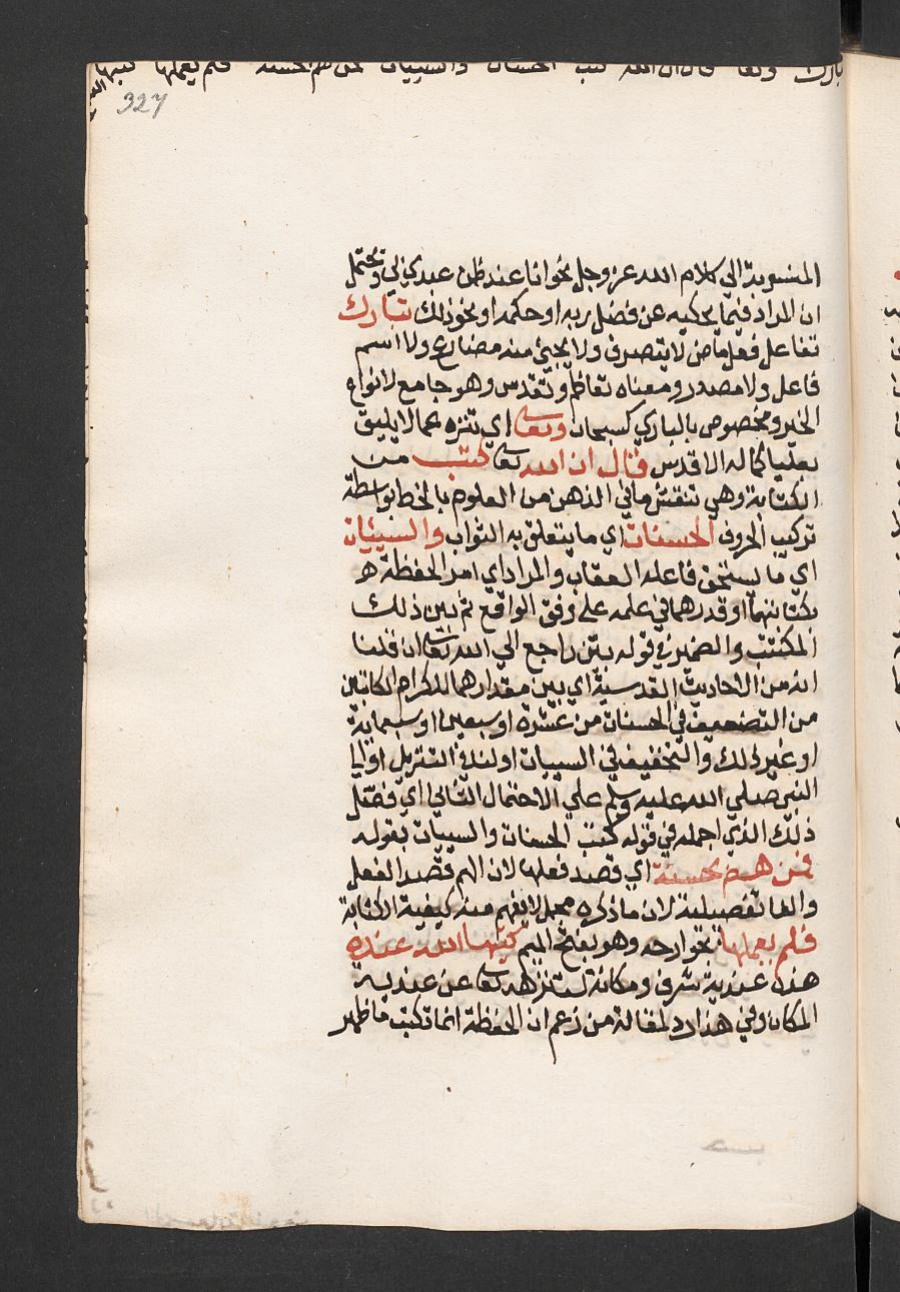 بارك وتعا قال ان الله كتب الحسنات والسيئات فمن هم بحسنة فلم يعملها كتبها
327
المنسوبة الي كلام الله عز وجل نحو انا عند ظن عبدي بي ويحتمل
ان المراد فيما يحكيه عن فضل ربه او حكمه او نحو ذلك تبارك
تفاعل فعل ماض لا يتصرف ولا يجئ منه مضارع ولا اسم
فاعل ولا مصدر ومعناه تعاظم وتقدس وهو جامع لانواع
الخير ومخصوص بالباري كسبحان وتعالى اي تنزه عما لا يليق
بعليا كماله الاقدس قال ان الله تعا كتب من
الكتابة وهي تنقش ما في الذهن من العلوم بالخط بواسطة
تركيب الحروف الحسنات اي ما يتعلق به الثواب والسيئات
اي ما يستحق فاعله العقاب والمراد اي امر الحفظة
بكتابتهما او قدرهما في علمه علي وفق الواقع ثم بين ذلك
المكتتب والضمير في قوله بين راجع الي الله تعا ان قلنا
انه من الاحاديث القدسية اي بين مقدارهما للكرام الكاتبين
من التضعيف في الحسنات من عشرة او سبعين او سبعماية
او غير ذلك والتخفيف في السيات او لنا في التنزيل او الي
النبي صلي الله عليه وسلم علي الاحتمال الثاني اي فصل
ذلك الذي اجمله في قوله كتب الحسنات والسيات بقوله
فمن هم بحسنة اي قصد فعلها لان الهم قصد الفعل
والفا تفصيلية لان ما ذكره مجمل لا يفهم منه كيفية الكتابة
فلم يعملها بجوارحه وهو بفتح الميم كتبها الله عنده
هذه عندية شرف ومكانة لتنزهه تعا عن عندية
المكان وفي هذا رد لمقالة من زعم ان الحفظة انما تكتب ما ظهر